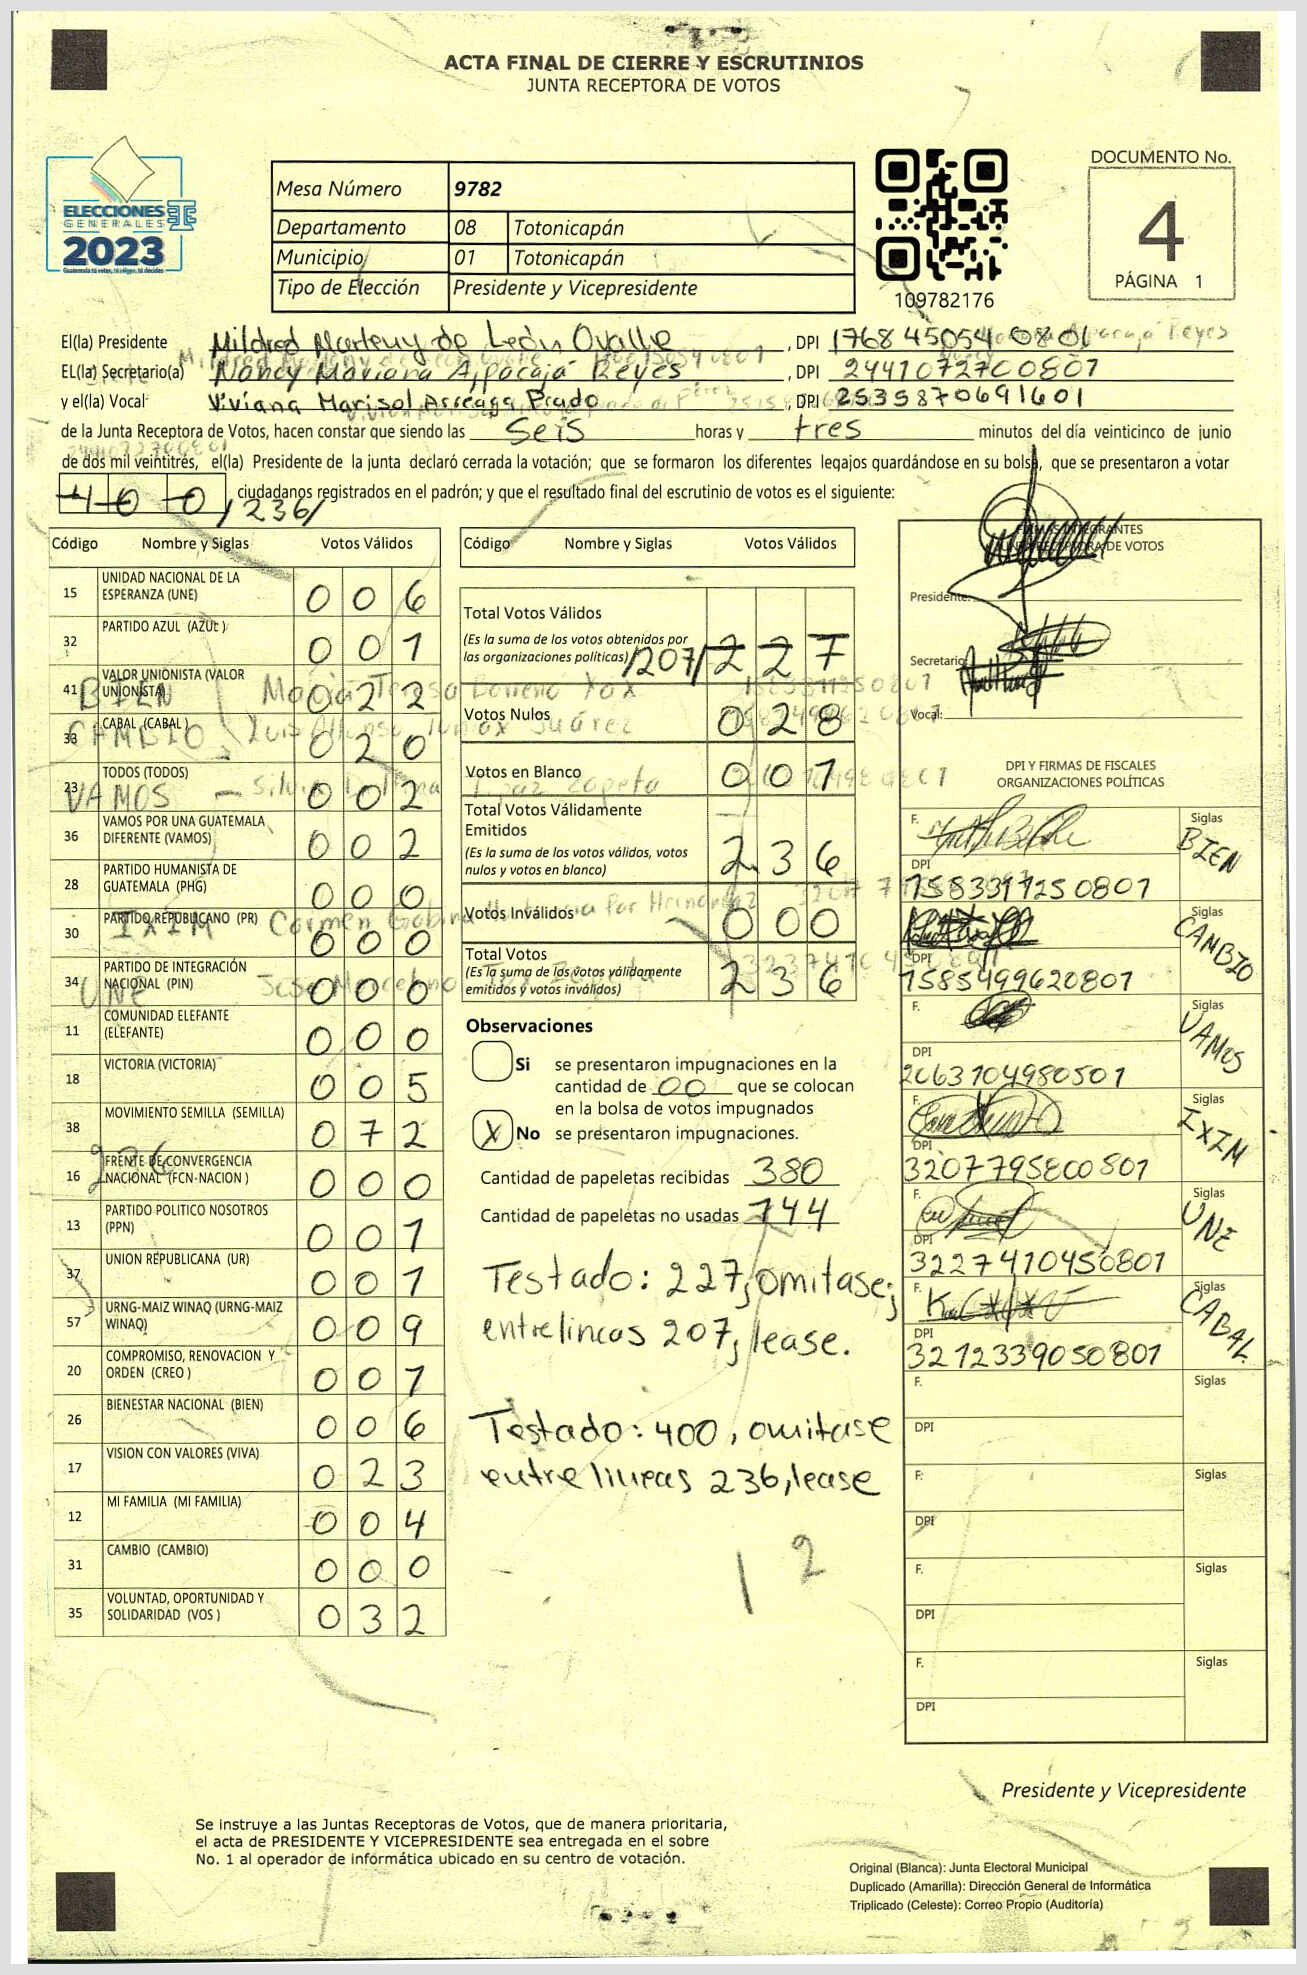 ACTA FINAL DE CIERRE Y ESCRUTINIOS
JUNTA RECEPTORA DE VOTOS
ELECCIONES
GENERALES
2023
Guatemala tú votas, tú eliges, tú decides
Mesa Número 9782
Departamento 08 Totonicapán
Municipio 01 Totonicapán
Tipo de Elección Presidente y Vicepresidente
109782176
DOCUMENTO No.
4
PÁGINA 1
El(la) Presidente Mildred Marleny de León Ovalle, DPI 1768 45054 0801
EL(la) Secretario(a) Nancy Mariana Ajpacajá Reyes, DPI 2441072700801
y el(la) Vocal Viviana Marisol Arreaga Prado, DPI 2535870691601
de la Junta Receptora de Votos, hacen constar que siendo las seis horas y tres minutos del día veinticinco de junio
de dos mil veintitrés, el(la) Presidente de la junta declaró cerrada la votación; que se formaron los diferentes legajos guardándose en su bolsa, que se presentaron a votar
400 /236/ ciudadanos registrados en el padrón; y que el resultado final del escrutinio de votos es el siguiente:
Código Nombre y Siglas Votos Válidos
15 UNIDAD NACIONAL DE LA ESPERANZA (UNE) 0 0 6
32 PARTIDO AZUL (AZUL ) 0 0 1
41 VALOR UNIONISTA (VALOR UNIONISTA) 0 2 2
33 CABAL (CABAL ) 0 2 0
23 TODOS (TODOS) 0 0 2
36 VAMOS POR UNA GUATEMALA DIFERENTE (VAMOS) 0 0 2
28 PARTIDO HUMANISTA DE GUATEMALA (PHG) 0 0 0
30 PARTIDO REPUBLICANO (PR) 0 0 0
34 PARTIDO DE INTEGRACIÓN NACIONAL (PIN) 0 0 0
11 COMUNIDAD ELEFANTE (ELEFANTE) 0 0 0
18 VICTORIA (VICTORIA) 0 0 5
38 MOVIMIENTO SEMILLA (SEMILLA) 0 7 2
16 FRENTE DE CONVERGENCIA NACIONAL (FCN-NACION ) 0 0 0
13 PARTIDO POLITICO NOSOTROS (PPN) 0 0 1
37 UNION REPUBLICANA (UR) 0 0 1
57 URNG-MAIZ WINAQ (URNG-MAIZ WINAQ) 0 0 9
20 COMPROMISO, RENOVACION Y ORDEN (CREO ) 0 0 1
26 BIENESTAR NACIONAL (BIEN) 0 0 6
17 VISION CON VALORES (VIVA) 0 2 3
12 MI FAMILIA (MI FAMILIA) 0 0 4
31 CAMBIO (CAMBIO) 0 0 0
35 VOLUNTAD, OPORTUNIDAD Y SOLIDARIDAD (VOS ) 0 3 2
Código Nombre y Siglas Votos Válidos
Total Votos Válidos
(Es la suma de los votos obtenidos por
las organizaciones políticas) /207/ 2 2 7
Votos Nulos 0 2 8
Votos en Blanco 0 0 1
Total Votos Válidamente
Emitidos
(Es la suma de los votos válidos, votos
nulos y votos en blanco) 2 3 6
Votos Inválidos 0 0 0
Total Votos
(Es la suma de los votos válidamente
emitidos y votos inválidos) 2 3 6
Observaciones
Si se presentaron impugnaciones en la
cantidad de 00 que se colocan
en la bolsa de votos impugnados
X No se presentaron impugnaciones.
Cantidad de papeletas recibidas 380
Cantidad de papeletas no usadas 144
Testado: 227, omitase;
entrelineas 207, lease.
Testado: 400, omitase
entre lineas 236, lease
1 2
FIRMAS INTEGRANTES
JUNTA RECEPTORA DE VOTOS
Presidente:
Secretario:
Vocal:
DPI Y FIRMAS DE FISCALES
ORGANIZACIONES POLÍTICAS
F. Siglas BIEN
DPI 1583311250801
Siglas CAMBIO
DPI 1585499620801
F. Siglas VAMOS
DPI 2063104980501
F. Siglas IXIM
DPI 3207795800801
F. Siglas UNE
DPI 3227410450801
F. Siglas CABAL
DPI 3212339050801
F. Siglas
DPI
F. Siglas
DPI
F. Siglas
DPI
F. Siglas
DPI
Presidente y Vicepresidente
Se instruye a las Juntas Receptoras de Votos, que de manera prioritaria,
el acta de PRESIDENTE Y VICEPRESIDENTE sea entregada en el sobre
No. 1 al operador de informática ubicado en su centro de votación.
Original (Blanca): Junta Electoral Municipal
Duplicado (Amarilla): Dirección General de Informática
Triplicado (Celeste): Correo Propio (Auditoría)